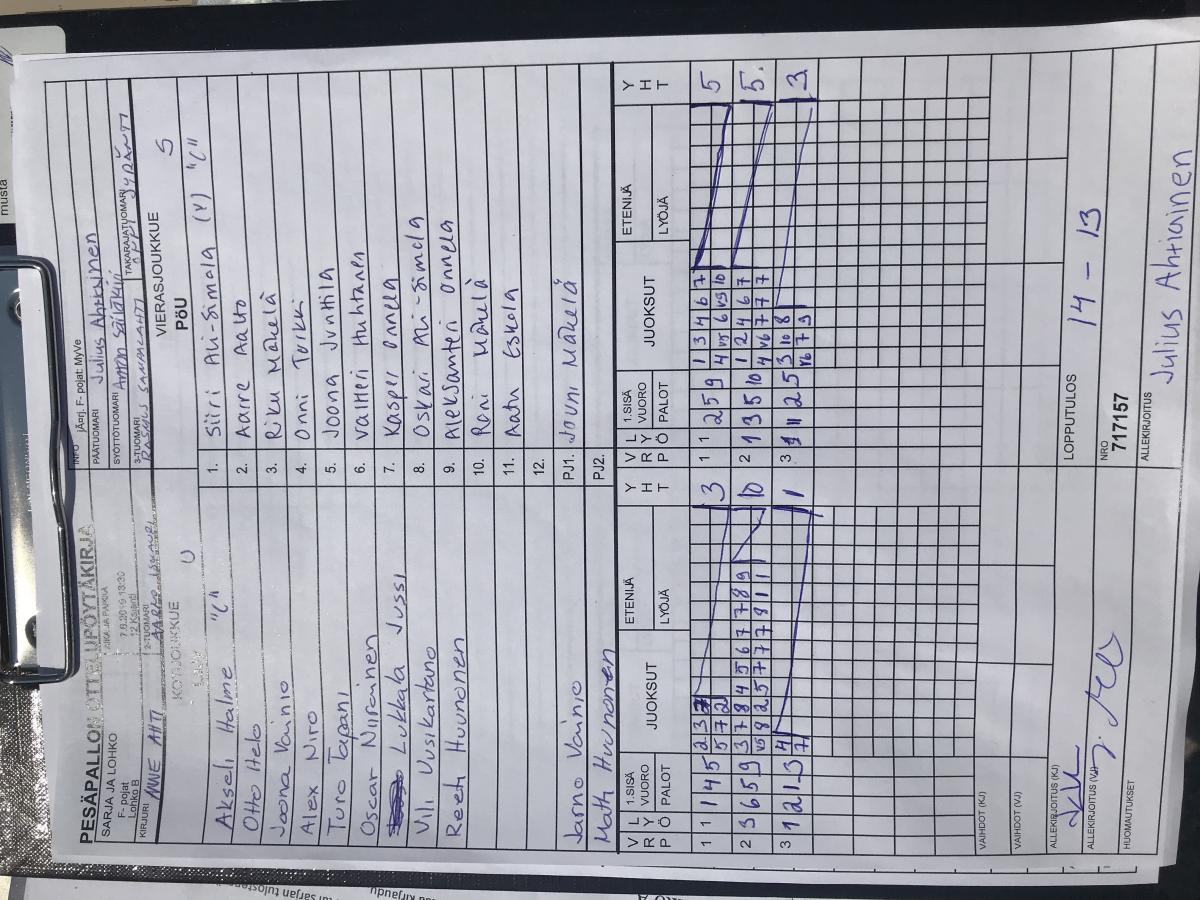 PESÄPALLON OTTELUPÖYTÄKIRJA
SARJA JA LOHKO
F- pojat
Lohko B
AIKA JA PAIKKA
7.6.2019 13:30
KIRJURI
ANNE AHTI
2-TUOMARI
INFO
F- pojat: MyVe
PÄÄTUOMARI
Julius Ahtiainen
SYÖTTÖTUOMARI
TAKARAJATUOMARI
3-TUOMARI
KOTIJOUKKUE
U
VIERASJOUKKUE
PöU
S
Akseli Halme "C"
Otto Itelo
Joona Vainio
Alex Niro
Turo Tapani
Oscar Niirainen
Lukkala Jussi
Vili Uusikartano
Reeti Huunonen
Jarno Vainio
Matti Huunonen
1. Siiri Ali-Simala (V) "C"
2. Aarre Aalto
3. Riku Mäkelä
4. Onni Turkki
5. Joona Junttila
6. Valtteri Huhtanen
7. Kasper Onnela
8. Oskari Ali-Simola
9. Aleksanteri Onnela
10. Roni Mäkelä
11. Aatu Eskola
12.
PJ1. Jouni Mäkelä
PJ2.
V R P
L Y Ö
1.SISÄ VUORO
PALOT
JUOKSUT
ETENIJÄ
LYÖJÄ
Y H T
V R P
L Y Ö
1.SISÄ VUORO
PALOT
JUOKSUT
ETENIJÄ
LYÖJÄ
Y H T
1 1 1 4 5 2 3 7 3
5 7 2
2 3 6 5 9 3 7 8 4 5 6 7 7 8 9 10
V5 8 2 5 7 7 7 9 1 1
3 1 2 1 3 4 1
7
1 1 2 5 9 1 3 4 6 7 5
4 V5 6 V3 10
2 1 3 5 10 1 2 4 6 7 5.
4 V6 7 7 7
3 11 2 5 3 10 8 3
V6 7 9
VAIHDOT (KJ)
VAIHDOT (VJ)
ALLEKIRJOITUS (KJ)
ALLEKIRJOITUS (VJ)
HUOMAUTUKSET
LOPPUTULOS
14 - 13
NRO
717157
ALLEKIRJOITUS
Julius Ahtiainen
musta